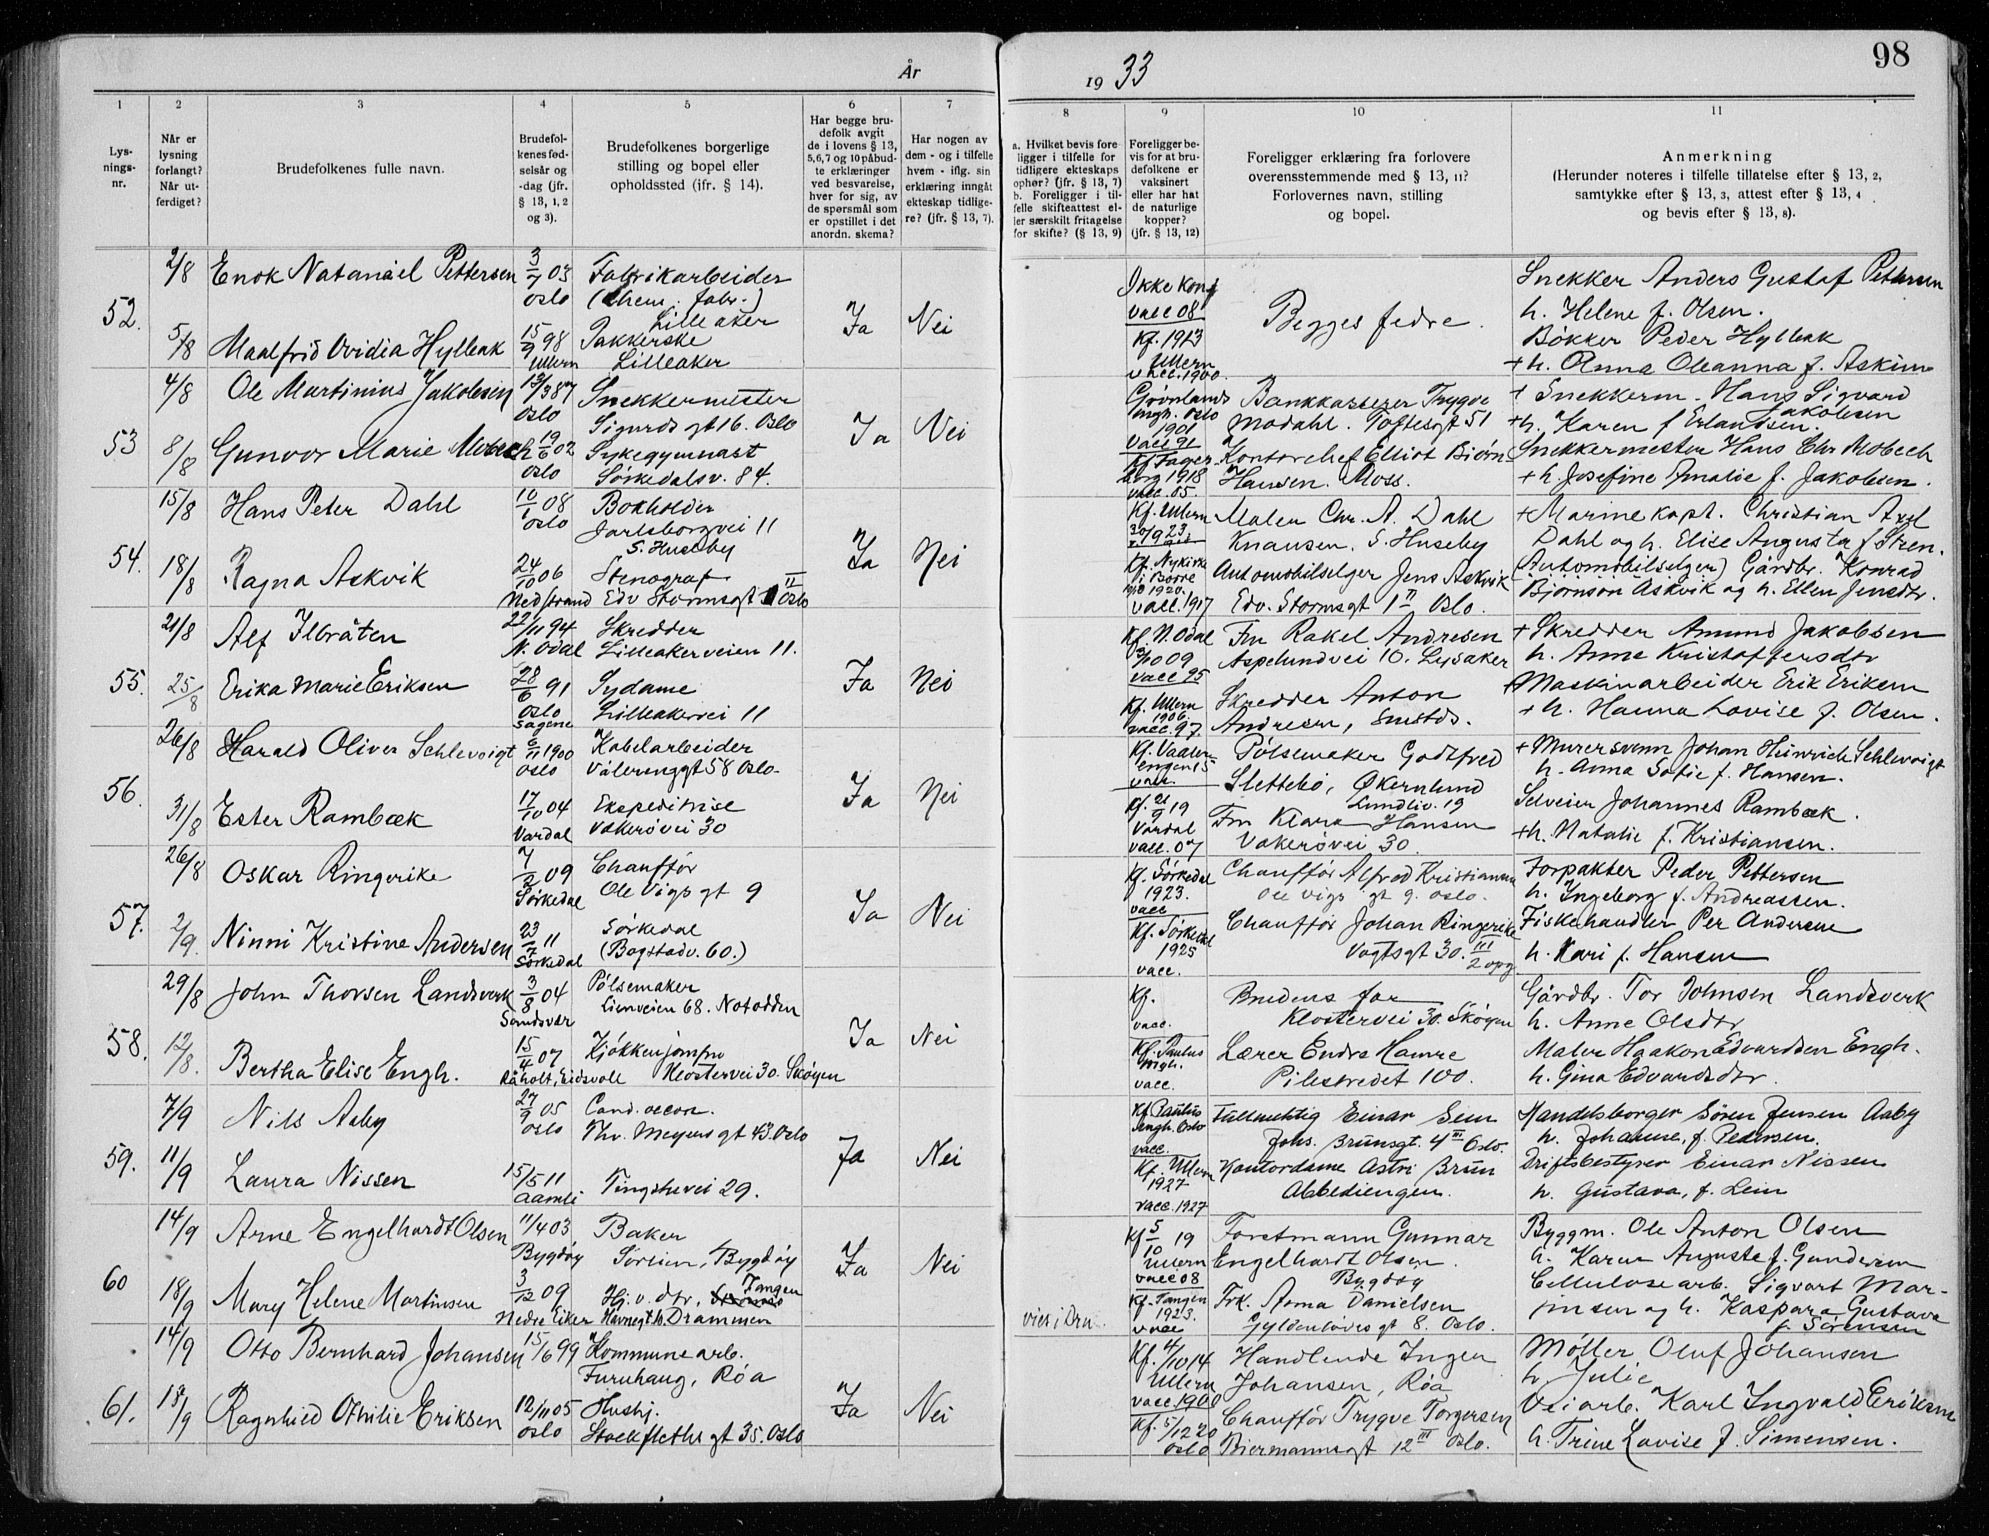 År
19 33
98
1
2
3
4
5
6
7
8
9
10
11
Lys-
nings-
nr.
Når er
lysning
forlangt?
Når ut-
ferdiget?
Brudefolkenes fulle navn.
Brudefol-
kenes fød-
selsår og
-dag (jfr.
§ 13, 1, 2
og 3).
Brudefolkenes borgerlige
stilling og bopel eller
opholdssted (ifr. § 14).
Har begge bru-
defolk avgit
de i lovens § 13,
5,6,7 og 10 påbud-
te erklæringer
ved besvarelse,
hver for sig, av
de spørsmål som
er opstillet i det
anordn. skema?
Har nogen av
dem - og i tilfelle
hvem - iflg. sin
erklæring inngåt
ekteskap tidlige-
re? (jfr. § 13, 7).
a. Hvilket bevis fore
ligger i tilfelle for
tidligere ekteskaps
ophør? (jfr. § 13, 7)
b. Foreligger i til-
felle skifteattest el-
ler særskilt fritagelse
for skifte? (§ 13, 9)
Foreligger be-
vis for at bru-
defolkene er
vaksinert
eller har hat
de naturlige
kopper?
(jfr. § 13, 12)
Foreligger erklæring fra forlovere
overensstemmende med § 13, 11?
Forlovernes navn, stilling
og bopel.
Anmerkning
(Herunder noteres i tilfelle tillatelse efter § 13, 2,
samtykke efter § 13, 3, attest efter § 13, 4
og bevis efter § 13, 8).
52.
2/8 Enok Natanael Pettersen 3/7 03 Oslo
Fabrikarbeider
(Chem. fabr.)
Lilleaker
5/8 Maalfrid Ovidia Hylleak 15/9 98 Ullern
Pakkerske
Lilleaker
Ja Nei
Ikke konf
vacc 08
Kf. 1913
Ullern
vacc. 1900.
Begges fedre.
Snekker Anders Gustaf Pettersen
h. Helene f. Olsen.
Bøkker Peder Hylleak
+ h. Anna Oleanna f. Askim
53
4/8 Ole Martinius Jakobsen /3 87 Oslo
Snekkermester
Sigurds gt 16. Oslo
8/8 Gunvor Marie Mobech 19/6 02 Oslo
Sykegymnast
Sørkedalsv. 84.
Ja Nei
Grønlands
mgh. Oslo
1901
Vacc 91
Kf Fager-
borg 1918
vacc. 05.
Bankkasserer Trygve
Modahl. Toftesgt 51
Kontorchef Elliot Biørn-
Hansen. Moss.
+ Snekkerm. Hans Sigvard
Jakobsen
+ h. Karen f Erlandsen.
Snekkermester Hans Chr Mobech
+ h. Josefine Amalie f. Jakobsen.
54.
15/8 Hans Peter Dahl 10/1 08 Oslo
Bokholder
Jarlsborgvei 11
S. Huseby
18/8 Ragna Askvik 24/10 06 Nedstrand
Stenograf
Edv Stormsgt 1 II Oslo
Ja Nei
Kf. Ullern
30/9 23
Kf. Nykirke
i Borre
1920.
vacc. 1917
Maler Chr. A. Dahl
Knausen. S. Huseby
Automobilselger Jens Askvik
Edv. Stormsgt 1 II Oslo.
+ Marinekapt. Christian Axel
Dahl og h. Elise Augusta f Sten.
(Automobilselger) Gårdbr. Konrad
Bjørnson Askvik og h. Ellen Jensdtr.
55.
21/8 Alf Ilbråten 22/11 94 N. Odal
Skredder
Lilleakerveien 11.
25/8 Erika Marie Eriksen 28/6 91 Oslo Sagene
Sydame
Lilleakervei 11
Ja Nei
Kf. N. Odal
3/10 09
vacc 95
Kf. Ullern
1906.
vacc. 97
Fru Rakel Andresen
Aspelundvei 10. Lysaker
Skredder Anton
Andresen, Smstds.
+ Skredder Amund Jakobsen
h. Anne Kristoffersdtr
+ Maskinarbeider Erik Eriksen
+ h. Hanna Lovise f. Olsen.
56.
26/8 Harald Oliver Schlevoigt 6/11 1900 Oslo
Kabelarbeider
Vålerenggt 58 Oslo.
31/8 Ester Rambæk 17/10 04 Vardal
Ekspeditrise
Vækerøvei 30
Ja Nei
Kf. Vaaler-
engen 15
vacc.
Kf. 21/9 19
Vardal
vacc. 07
Pølsemaker Godtfred
Slettebø, Økernlund
Lundliv. 19
Fru Klara Hansen
Vækerøvei 30.
+ Murersvenn Johan Heinrich Schlevoigt
h. Anna Sofie f. Hansen.
Selveier Johannes Rambæk.
+ h. Natalie f. Kristiansen.
57.
26/8 Oskar Ringerike 7/2 09 Sørkedal
Chauffør
Ole Vigs gt 9
2/9. Ninni Kristine Andersen 23/7 11 Sørkedal
Sørkedal
(Bogstadv. 60.)
Ja Nei
Kf. Sørkedal
1923.
vacc
Kf. Sørkedal
1925
vacc.
Chauffør Alfred Kristiansen
Ole Vigs gt 9. Oslo.
Chauffør Johan Ringerike
Vogtsgt 30. III
2 opg
Forpakter Peder Pettersen
h. Ingeborg f. Andreassen.
Fiskehandler Per Andersen
h. Kari f. Hansen
58.
29/8 John Thorsen Landsverk 3/8 04 Sandsvær
Pølsemaker
Lienveien 68. Notodden
12/8. Bertha Elise Engh. 15/4 07 Råholt, Eidsvoll
Kjøkkenjomfru
Klostervei 30. Skøyen
Ja Nei
Kf.
vacc.
Kf. Paulus
mgh.
vacc.
Brudens far
Klostervei 30. Skøyen
Lærer Endre Hamre
Pilestredet 100.
Gårdbr. Tor Johnsen Landsverk
h. Anne Olsdtr
Maler Haakon Edvardsen Engh.
h. Gina Edvardsdtr.
59.
7/9 Nils Aaby 27/9 05 Oslo
Cand. oecon.
Thv. Meyers gt 43. Oslo
11/9 Laura Nissen 15/5 11 Aamli
Tingstuvei 29.
Ja Nei
Kf. Paulus
mgh. Oslo
vacc.
Kf. Ullern
1927
vacc. 1927
Fullmektig Einar Sem
Johs. Brunsgt. 4 III Oslo.
Kontordame Astri Brun
Abbediengen.
Handelsborger Søren Jensen Aaby
h. Johanne, f. Pedersen.
Driftsbestyrer Einar Nissen
h. Gustava, f. Lein
60
14/9 Arne Engelhardt Olsen 11/4 03 Bygdøy
Baker
Bygdøy
18/9 Mary Helene Martinsen 3/12 09 Nedre Eiker
Hj. v. dtr, Tangen
Havnegt 10. Drammen
Ja Nei
viet i Drm.
Kf 5/10 19
Ullern
vacc 08
Kf. Tangen
1923.
vacc
Forstmann Gunnar
Engelhardt Olsen.
Bygdøy
Frk. Anna Danielsen
Gyldenløves gt 8. Oslo.
Byggm. Ole Anton Olsen
h. Karen Auguste f. Gundersen
Cellulosearb. Sigvart Mar-
tinsen og h. Kaspara Gustava
f. Sørensen
61.
14/9 Otto Bernhard Johansen 15/6 99
Kommunearb.
Furuhaug, Røa
18/9 Ragnhild Othilie Eriksen 12/11 05 Oslo
Hushj.
Stockfleths gt 35. Oslo
Ja Nei
Kf. 4/10 14
Ullern
vacc 1900
Kf. 5/12 20
Oslo
Handlende Inger
Johansen, Røa
Chauffør Trygve Torgersen
Biermannsgt 12 III Oslo.
Møller Oluf Johansen
h Julie
Veiarb. Karl Ingvald Eriksen
h. Trine Lovise f. Simensen.